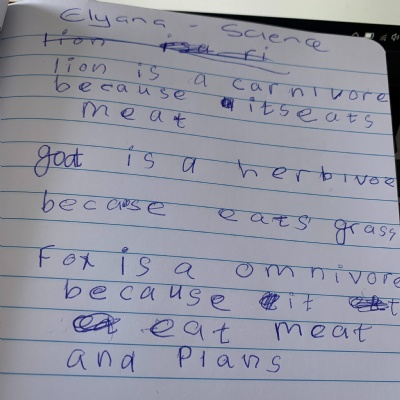 Elyana - Science
lion is a ri
lion is a carnivore
because itseats
meat
goat is a herbivoe
because eats grass
Fox is a omnivore
because it
eat meat
and Plans